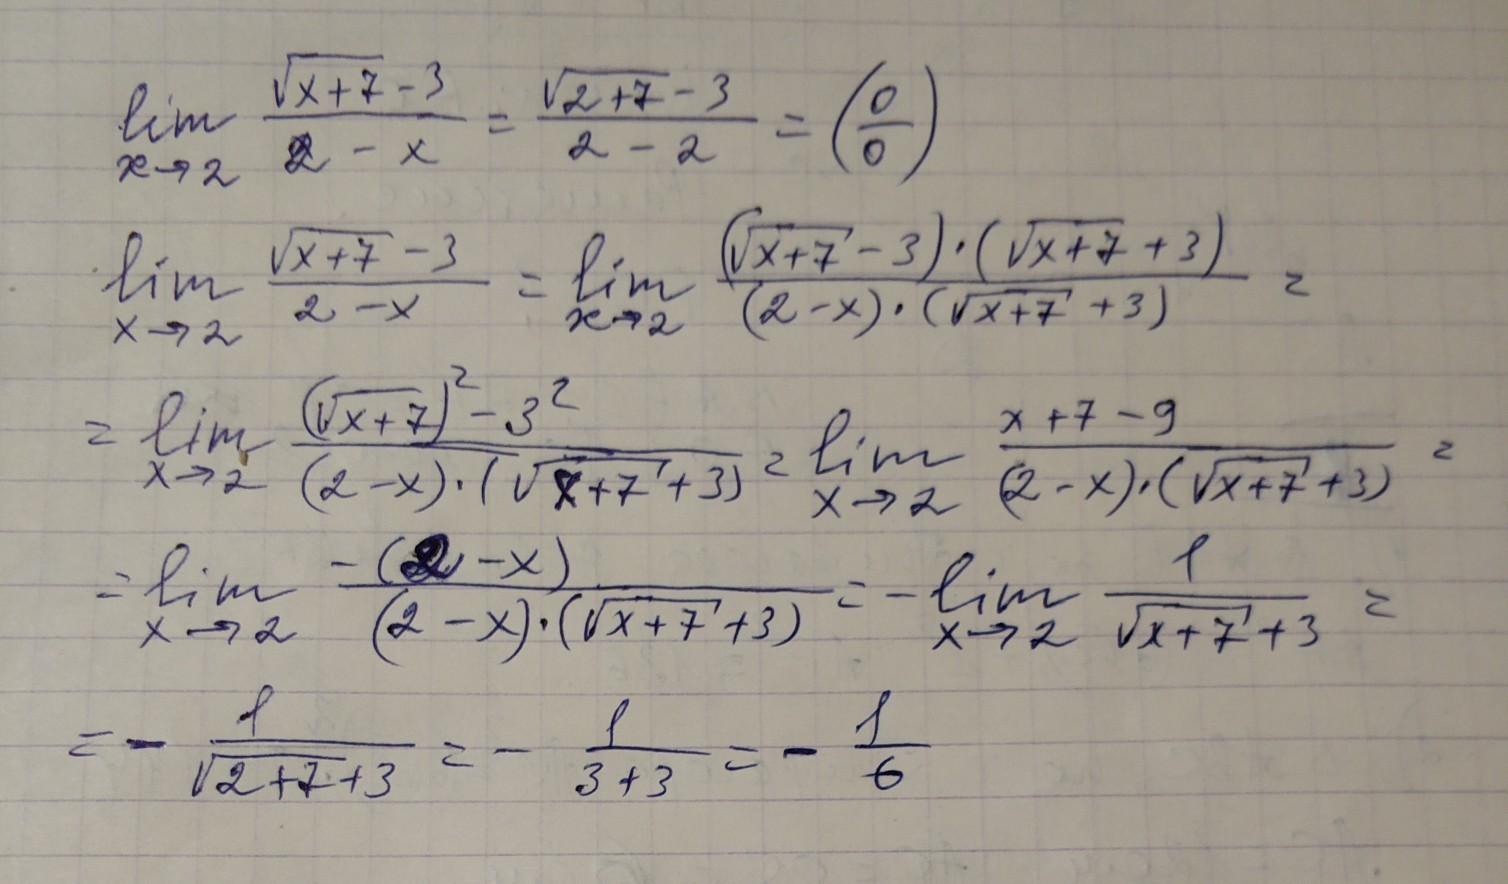 lim x→2 (√(x+7) - 3)/(2 - x) = (√(2+7) - 3)/(2 - 2) = (0/0)
lim x→2 (√(x+7) - 3)/(2 - x) = lim x→2 ((√(x+7) - 3)·(√(x+7) + 3))/((2-x)·(√(x+7) + 3)) =
= lim x→2 ((√(x+7))² - 3²)/((2-x)·(√(x+7) + 3)) = lim x→2 (x + 7 - 9)/((2-x)·(√(x+7) + 3)) =
= lim x→2 (-(2-x))/((2-x)·(√(x+7) + 3)) = - lim x→2 1/(√(x+7) + 3) =
= - 1/(√(2+7) + 3) = - 1/(3+3) = - 1/6